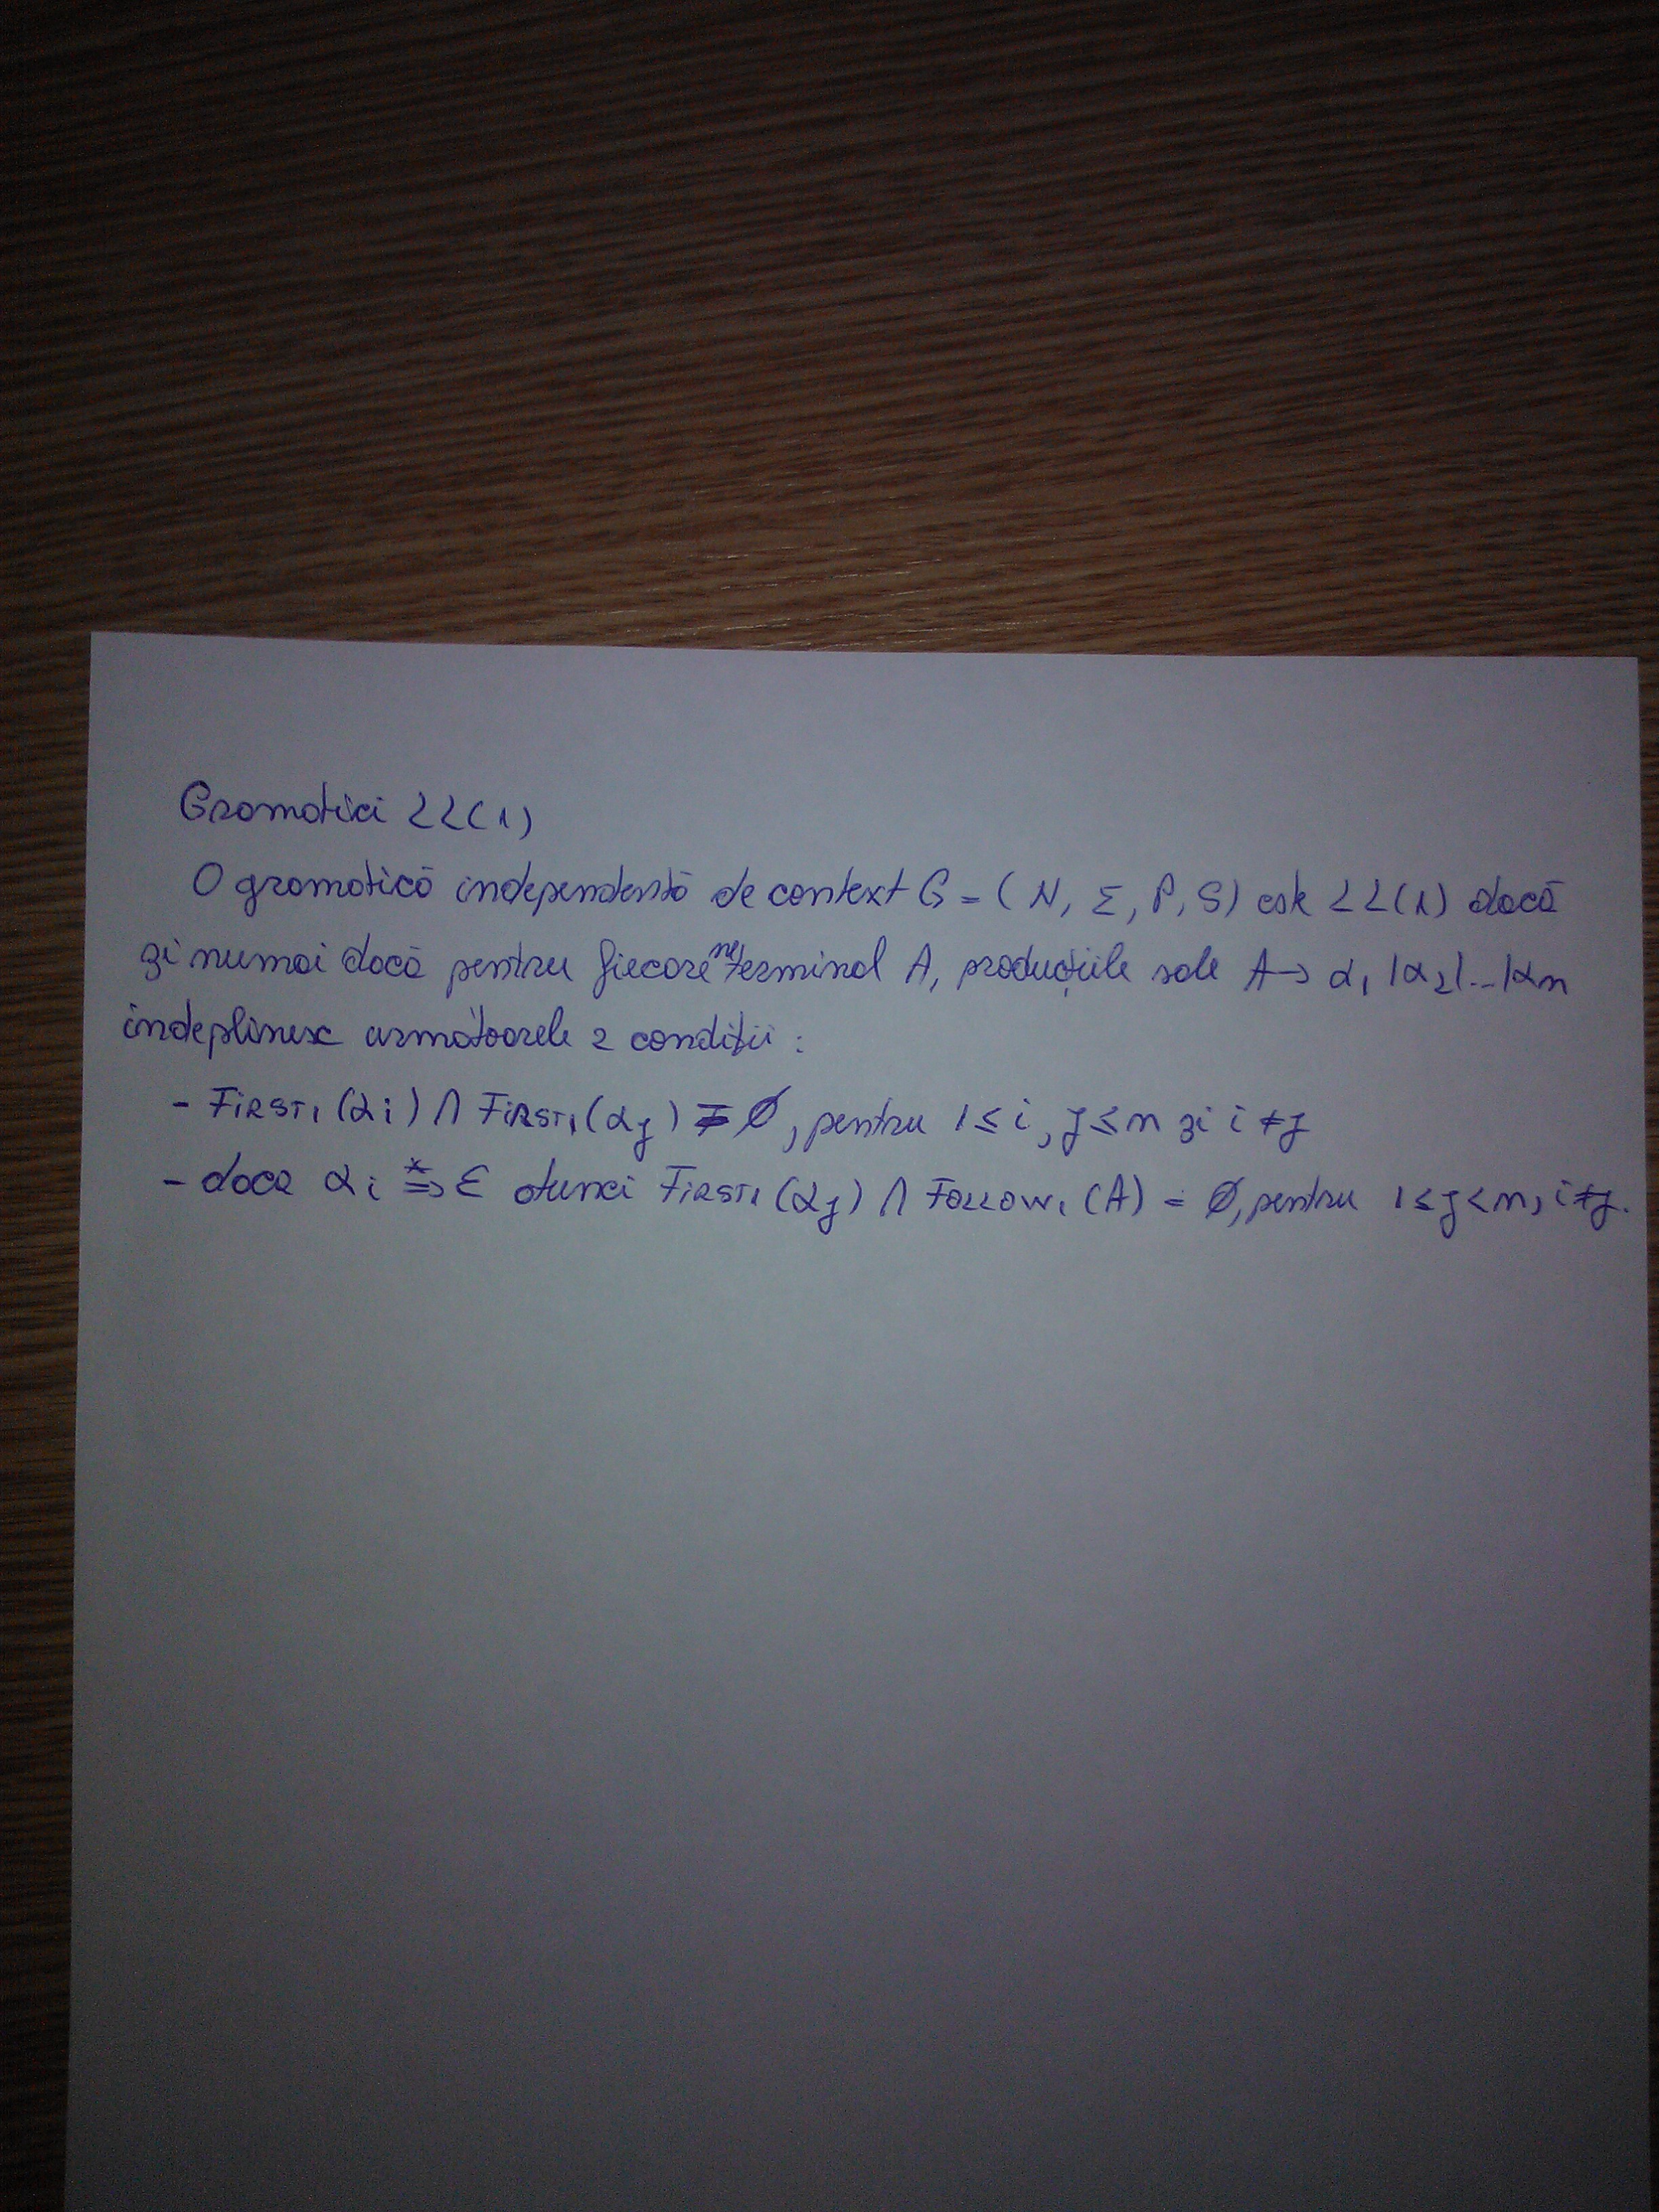 Gramatici LL(1)
O gramatică independentă de context G = (N, Σ, P, S) este LL(1) dacă
și numai dacă pentru fiecare neterminal A, producțiile sale A → α₁ |α₂|...|αn
indeplinesc următoarele 2 condiții :
- FIRST₁ (αi) ∩ FIRST₁ (αj) = ∅, pentru 1 ≤ i, j ≤ n și i ≠ j
- daca αi *⇒ ε atunci FIRST₁ (αj) ∩ FOLLOW₁ (A) = ∅, pentru 1 ≤ j < n, i ≠ j.